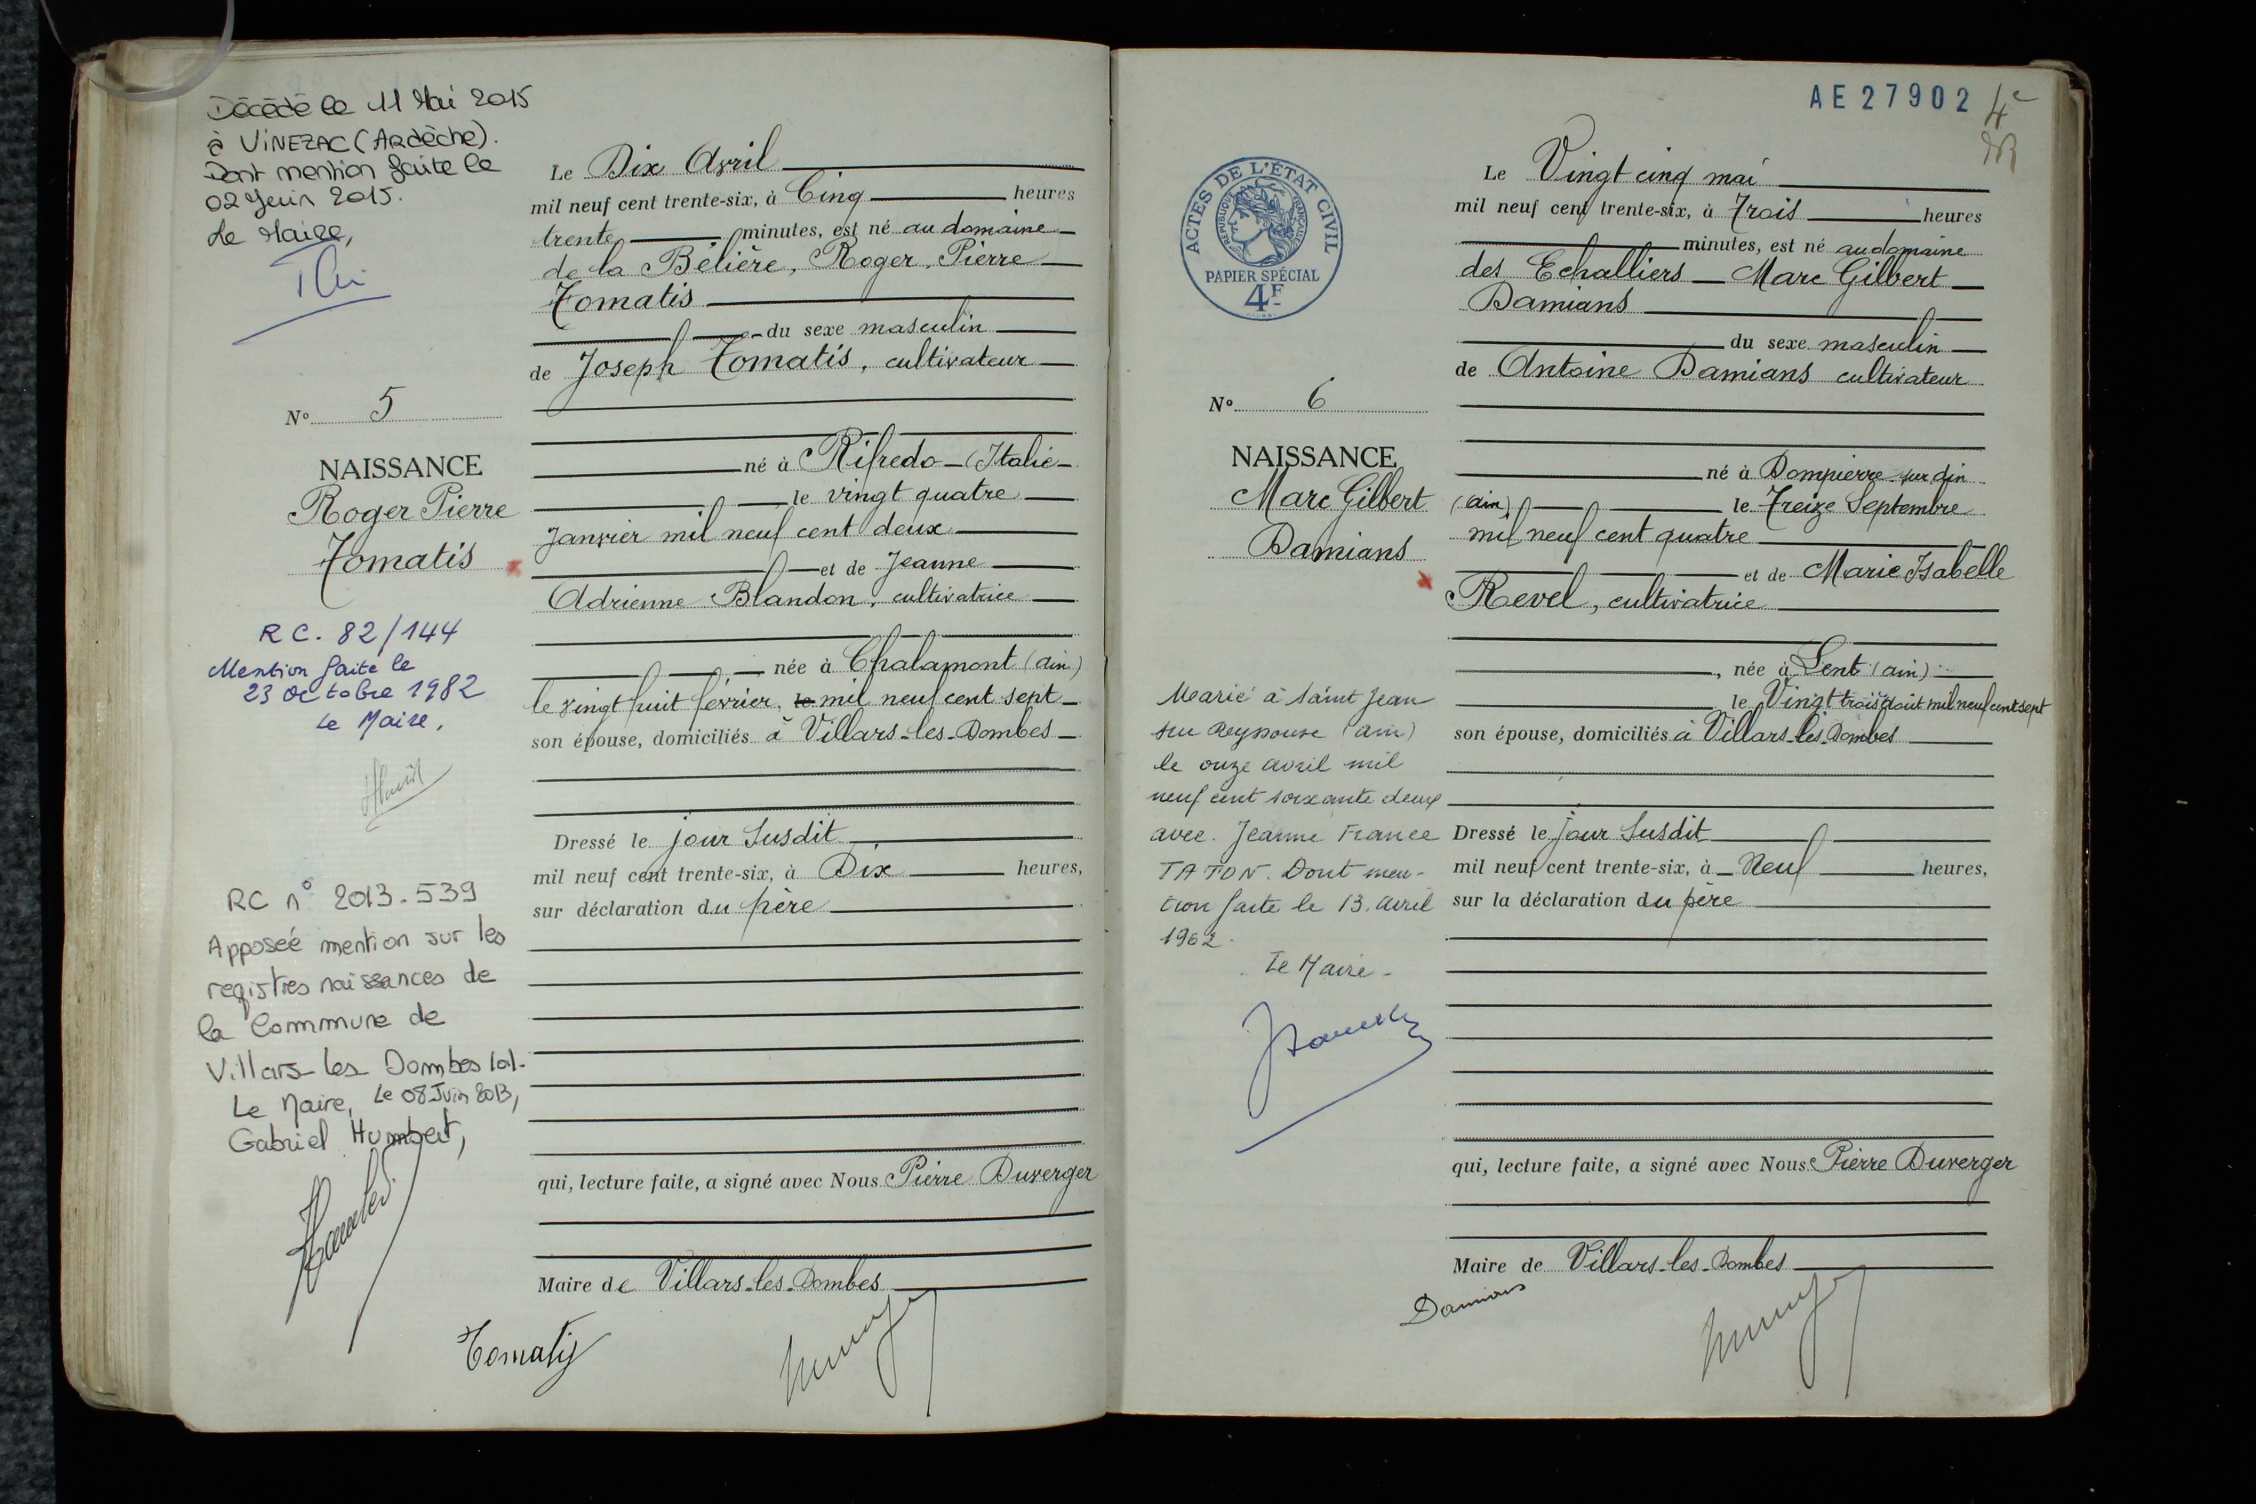 Décédé le 11 Mai 2015
à VINEZAC (Ardèche).
Dont mention faite le
02 Juin 2015.
Le Maire,
N° 5
NAISSANCE
Roger Pierre
Tomatis
RC. 82/144
Mention faite le
23 octobre 1982
Le Maire,
RC n° 2013.539
Apposée mention sur les
registres naissances de
la Commune de
Villars les Dombes
Le Maire, Le 08 Juin 2013,
Gabriel Humbert,
Le Dix Avril
mil neuf cent trente-six, à Cinq heures
trente minutes, est né au domaine
de la Bélière, Roger, Pierre
Tomatis
du sexe masculin
de Joseph Tomatis, cultivateur
né à Rifredo (Italie
le vingt quatre
Janvier mil neuf cent deux
et de Jeanne
Adrienne Blandon, cultivatrice
née à Chalamont (ain)
le vingt huit février, le mil neuf cent sept
son épouse, domiciliés à Villars-les-Dombes
Dressé le jour Susdit
mil neuf cent trente-six, à Dix heures,
sur déclaration du père
qui, lecture faite, a signé avec Nous Pierre Duverger
Maire de Villars-les-Dombes
Tomatis
AE27902
4
ACTES DE L'ÉTAT CIVIL
RÉPUBLIQUE FRANÇAISE
PAPIER SPÉCIAL
4F
N° 6
NAISSANCE
Marc Gilbert
Damians
Marié à Saint Jean
sur Reyssouze (ain)
le onze avril mil
neuf cent soixante deux
avec Jeanne France
TATON. Dont men-
tion faite le 13 avril
1962.
Le Maire
Le Vingt cinq mai
mil neuf cent trente-six, à Trois heures
minutes, est né au domaine
des Echalliers Marc Gilbert
Damians
du sexe masculin
de Antoine Damians cultivateur
né à Dompierre sur
(ain) le Treize Septembre
mil neuf cent quatre
et de Marie Isabelle
Revel, cultivatrice
, née à Lent (ain)
le Vingt trois août mil neuf cent sept
son épouse, domiciliés à Villars-les-Dombes
Dressé le jour Susdit
mil neuf cent trente-six, à Neuf heures,
sur la déclaration du père
qui, lecture faite, a signé avec Nous Pierre Duverger
Maire de Villars-les-Dombes
Damians